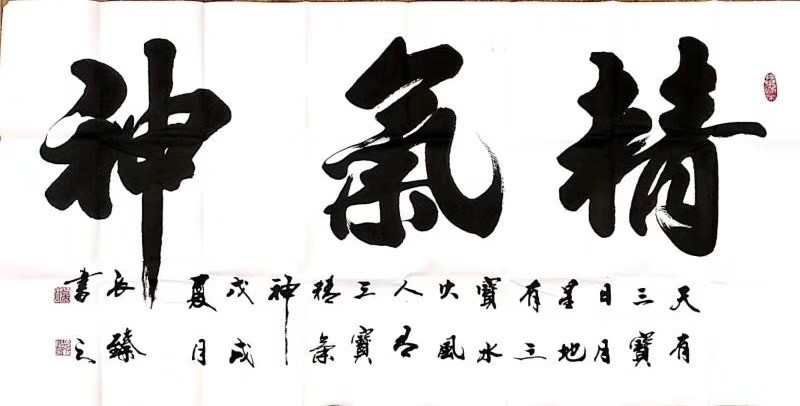 精氣神
天有
三寶
日月
星地
有三
寶水
火風
人有
三寶
精氣
神
戊戌
夏月
臻
書之